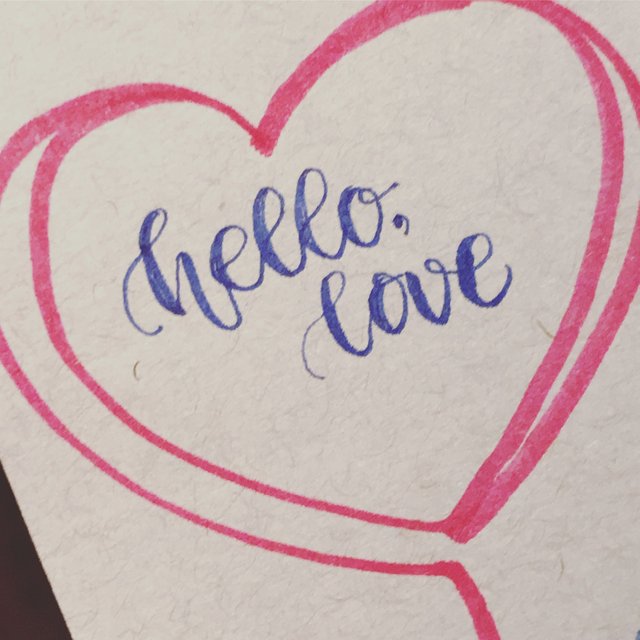 hello,
love